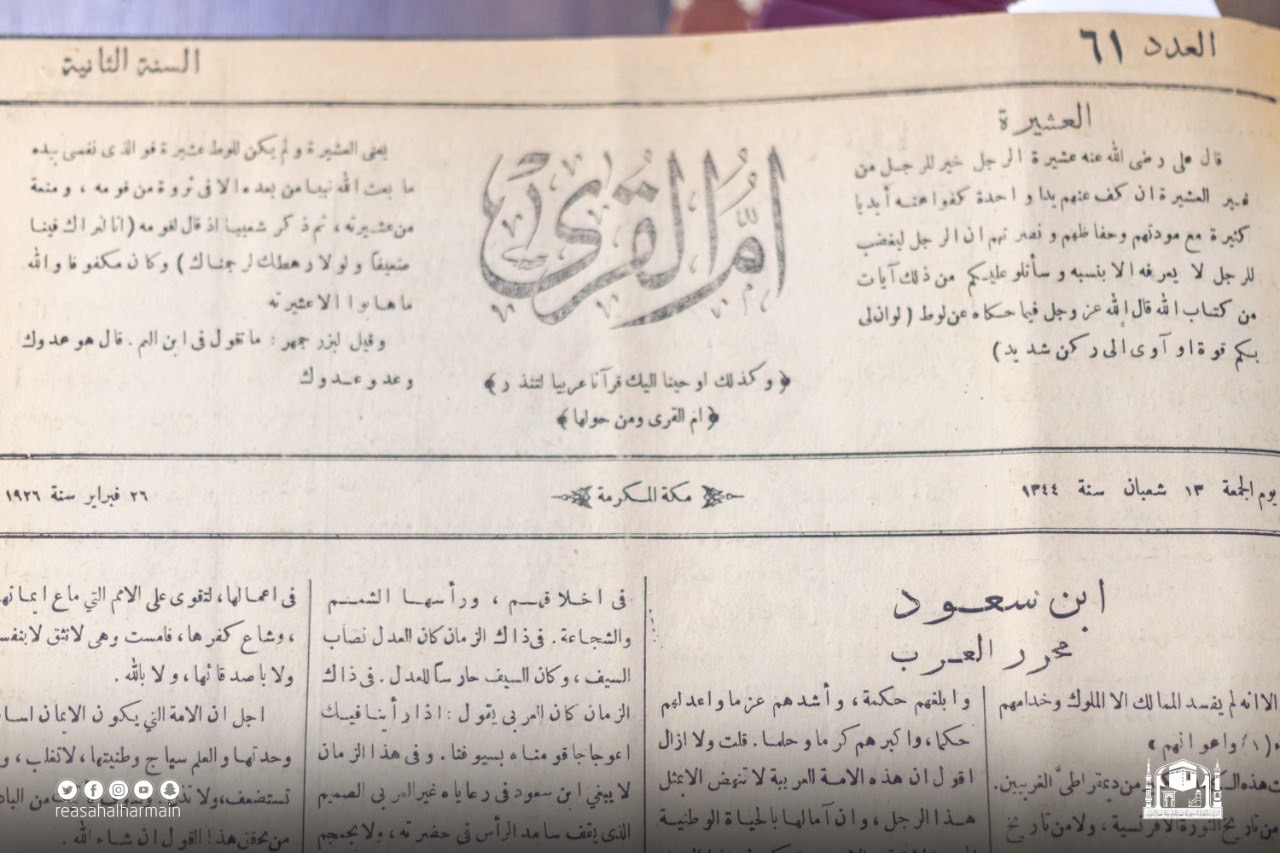 العدد ٦١
السنة الثانية
العشيرة
قال على رضى الله عنه عشيرة الرجل خير للرجل من
العشيرة ان كف عنهم يدا واحدة كفوا عنه أيديا
كثيرة مع مودتهم وحفاظهم ونصرتهم ان الرجل ليغضب
للرجل لا يعرفه الا بنسبه وسأتلو عليكم من ذلك آيات
من كتاب الله قال الله عز وجل فيما حكاه عن لوط (لوان لى
بكم قوة او آوى الى ركن شديد)
أم القرى
﴿وكذلك اوحينا اليك قرآنا عربيا لتنذر﴾
﴿ام القرى ومن حولها﴾
يعنى العشيرة ولم يكن للوط عشيرة فو الذى نفسى بيده
ما بعث الله نبيا من بعده الا فى ثروة من قومه ، ومنعة
من عشيرته ، ثم ذكر شعيبا اذ قال لقومه (انا لنراك فينا
ضعيفا ولولا رهطك لرجمناك) وكان مكفوفا والله
ما هابوا الا عشيرته
وقيل لبزرجمهر : ما تقول فى ابن العم . قال هو عدوك
وعدو عدوك
يوم الجمعة ١٣ شعبان سنة ١٣٤٤
مكة المكرمة
٢٦ فبراير سنة ١٩٢٦
ابن سعود
محرر العرب
الا انه لم يفسد الممالك الا الملوك وخدامهم
(١) واعوانهم »
هذه من ديمقراطى الغربيين .
من تاريخ الثورة الافرنسية ، ولا من تاريخ
وابلغهم حكمة ، وأشدهم عزما واعدلهم
حكما، واكبرهم كرما وحلما. قلت ولا ازال
اقول ان هذه الامة العربية لا تنهض الا بمثل
هذا الرجل ، وان آمالها بالحياة الوطنية
فى اخلاقهم ، ورأسها الشمم
والشجاعة . فى ذاك الزمان كان العدل نصاب
السيف ، وكان السيف حارساً للعدل . فى ذاك
الزمان كان العربي يقول : اذا رأينا فيك
اعوجاجا قومناه بسيوفنا . وفى هذا الزمان
لا يبغي ابن سعود فى رعاياه غير العربى الصميم
الذى يقف سامد الرأس في حضرته ، ولا يحجم
فى اعمالها، لتقوى على الامم التي ماع ايمانها
، وشاع كفرها، فامست وهى لا تثق لا بنفسها
ولا باصدقائها ، ولا بالله .
اجل ان الامة التي يكون الايمان اساس
وحدتها والعلم سياج وطنيتها، لا تغلب ، و
تستضعف، ولا من
من يحقق هذا القول ان شاء الله .
reasahalharmain